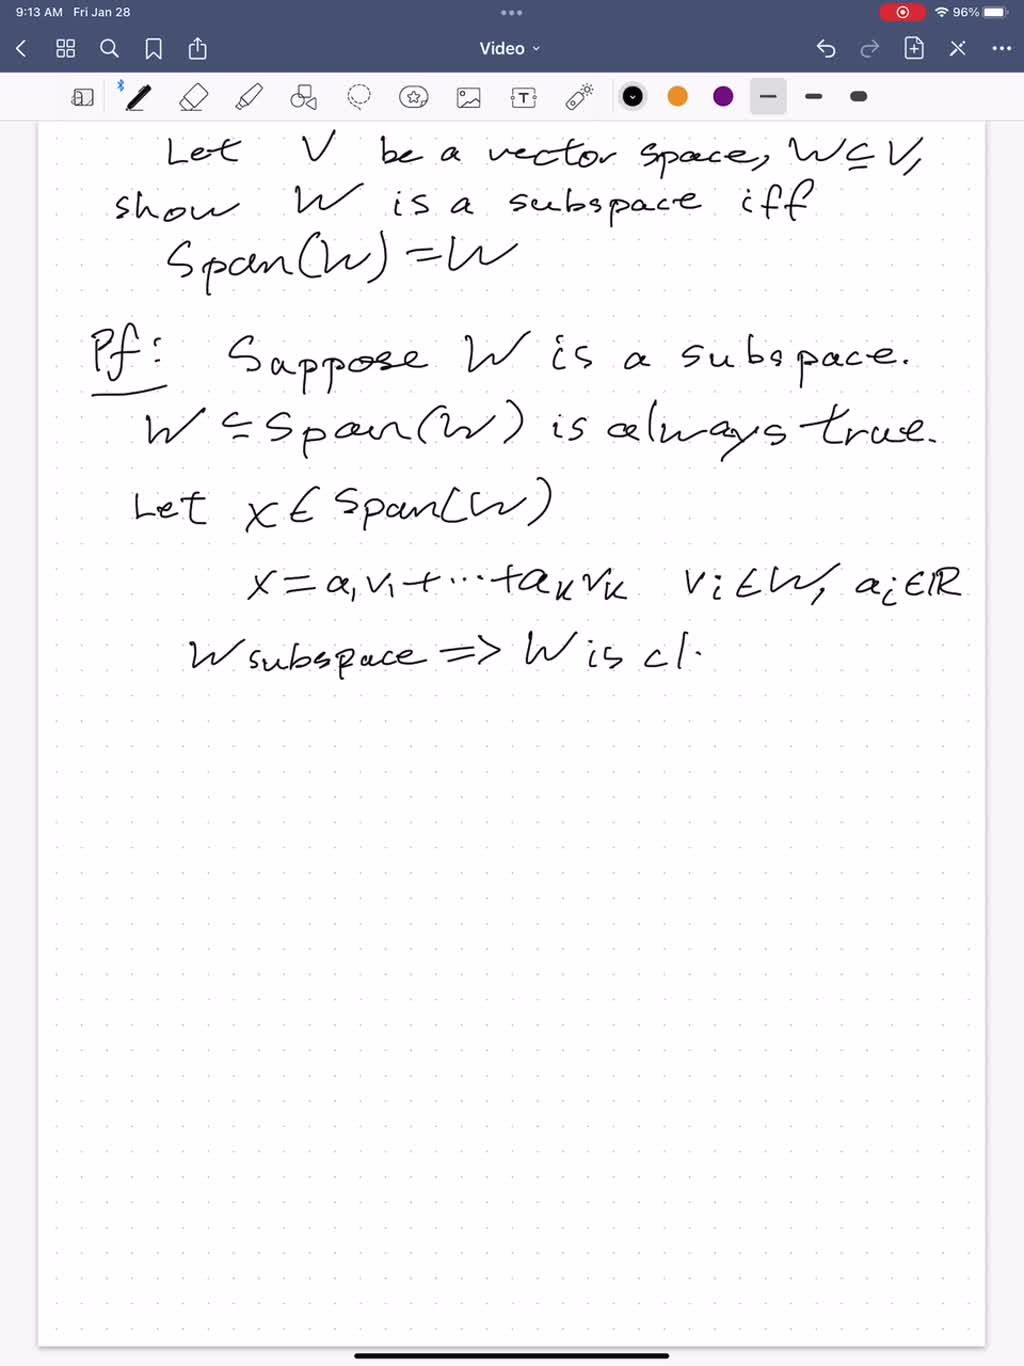 9:13 AM Fri Jan 28
96%
Video
T
Let V be a vector space, W ⊆ V,
show W is a subspace iff
Span(W) = W
Pf: Suppose W is a subspace.
W ⊆ Span(W) is always true.
Let x ∈ Span(W)
x = a₁v₁ + ⋯ + aₖvₖ vᵢ ∈ W, aᵢ ∈ ℝ
W subspace => W is cl.